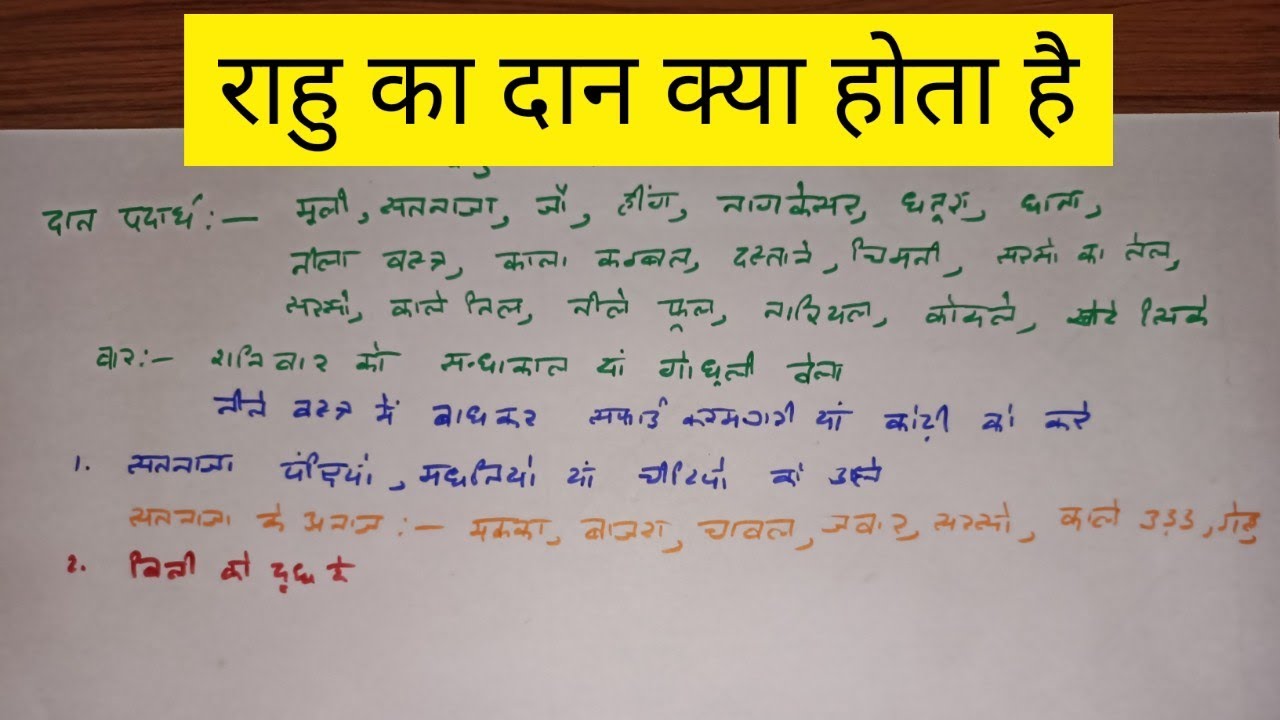 राहु का दान क्या होता है
दान पदार्थ :— मूली, सतनाजा, जौ, हींग, नागकेसर, धतूरा, धाना,
नीला वस्त्र, काला कम्बल, दस्ताने, चिमनी, सरसो का तेल,
सरसो, काले तिल, नीले फूल, नारियल, कोयले, खोटे सिक्के
वार :– शनिवार को सन्धाकाल यां गोधूली वेला
नीले वस्त्र में बाधकर सफाई करमचारी यां कोढ़ी को करे
1. सतनाजा पंछियो, मछलियो यां चीटियो को डाले
सतनाजा के अनाज :— मकका, बाजरा, चावल, जवार, सरसो, काले उड़द, गेहु
2. बिली को दूध दे